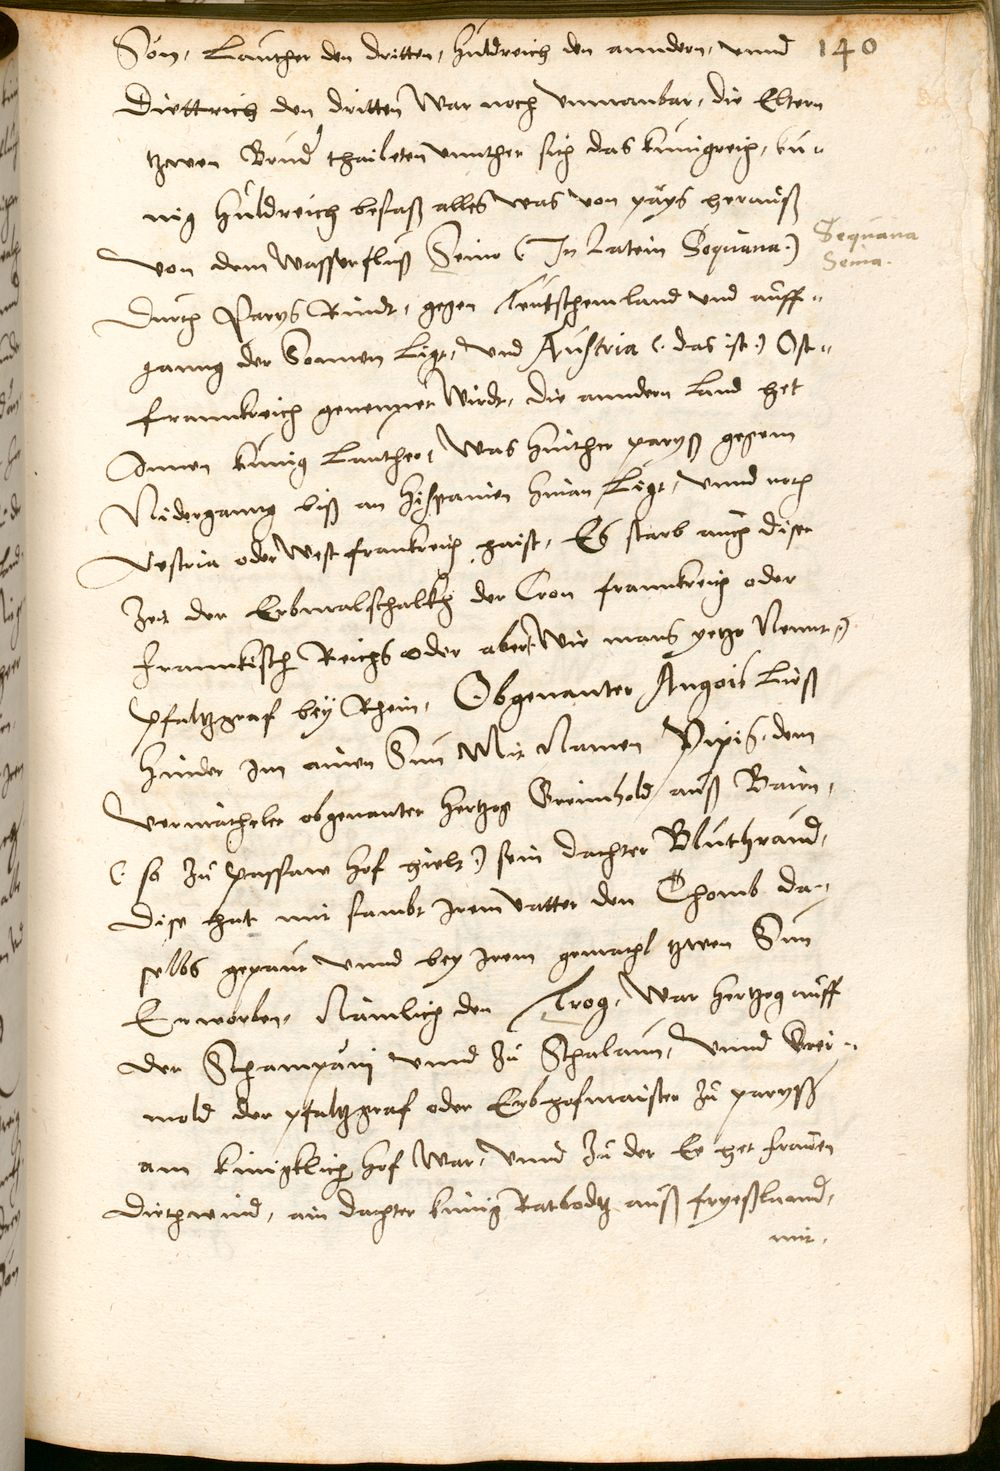 Sön, Lauther den dritten, Huldreich den anndern, vnnd 140
Diettrich den dritten War noch vnmanbar, die Eltern
tzwen Brud' thaileten vnnther sich das kunigreich, kü-
nig Huldreich besaß alles was von parys herauß
Von dem Wasserfluß Seine (. In Latein Sequana .)
Sequana
Seina.
Durch Parys Rindt, gegen Teütschemland vnd auff-
gamng der Sonnen Ligt, vnd Austria (. das ist .) Ost-
frannkreich genennet Wirdt, die anndern Land het
Innen künig Lauther, Was hinther paryß gegem
Nidergamng biß an Hispanien hinan Ligt, vnnd noch
Vestria oder West frankreich haist, Es starb auch diser
Zeit der Erbmarschalkh der Cron frannkreich oder
Frannkisch Reichs oder aber (. Wie mans yetzo Nennt .)
Pfaltzgraf bey Rhein, Obgenanter Angois Ließ
Hinder im ainen Sun Mit Namen Pipis, dem
Vermäthelet obgenanter Hertzog Greimhold auß Bairn,
(. so zu Passaw Hof hielt .) sein dochter Bluthraud,
Dise hat mit sambt Irem vatter den Thomb da-
selbs gepaut vnnd bey Irem gemahl tzwen Sun
Erworben, Nämlich den Trog, War Hertzog auff
der Schampäni vnnd zu Schalaun, vnnd Krei-
mold der pfaltzgraf oder Erbhofmaister zu paryß
am kunigklich Hof War, vnnd zu der Ee het frawen
Diethwind, ain dochter künig Ratbodtz auß fryeßlaand,
mit,